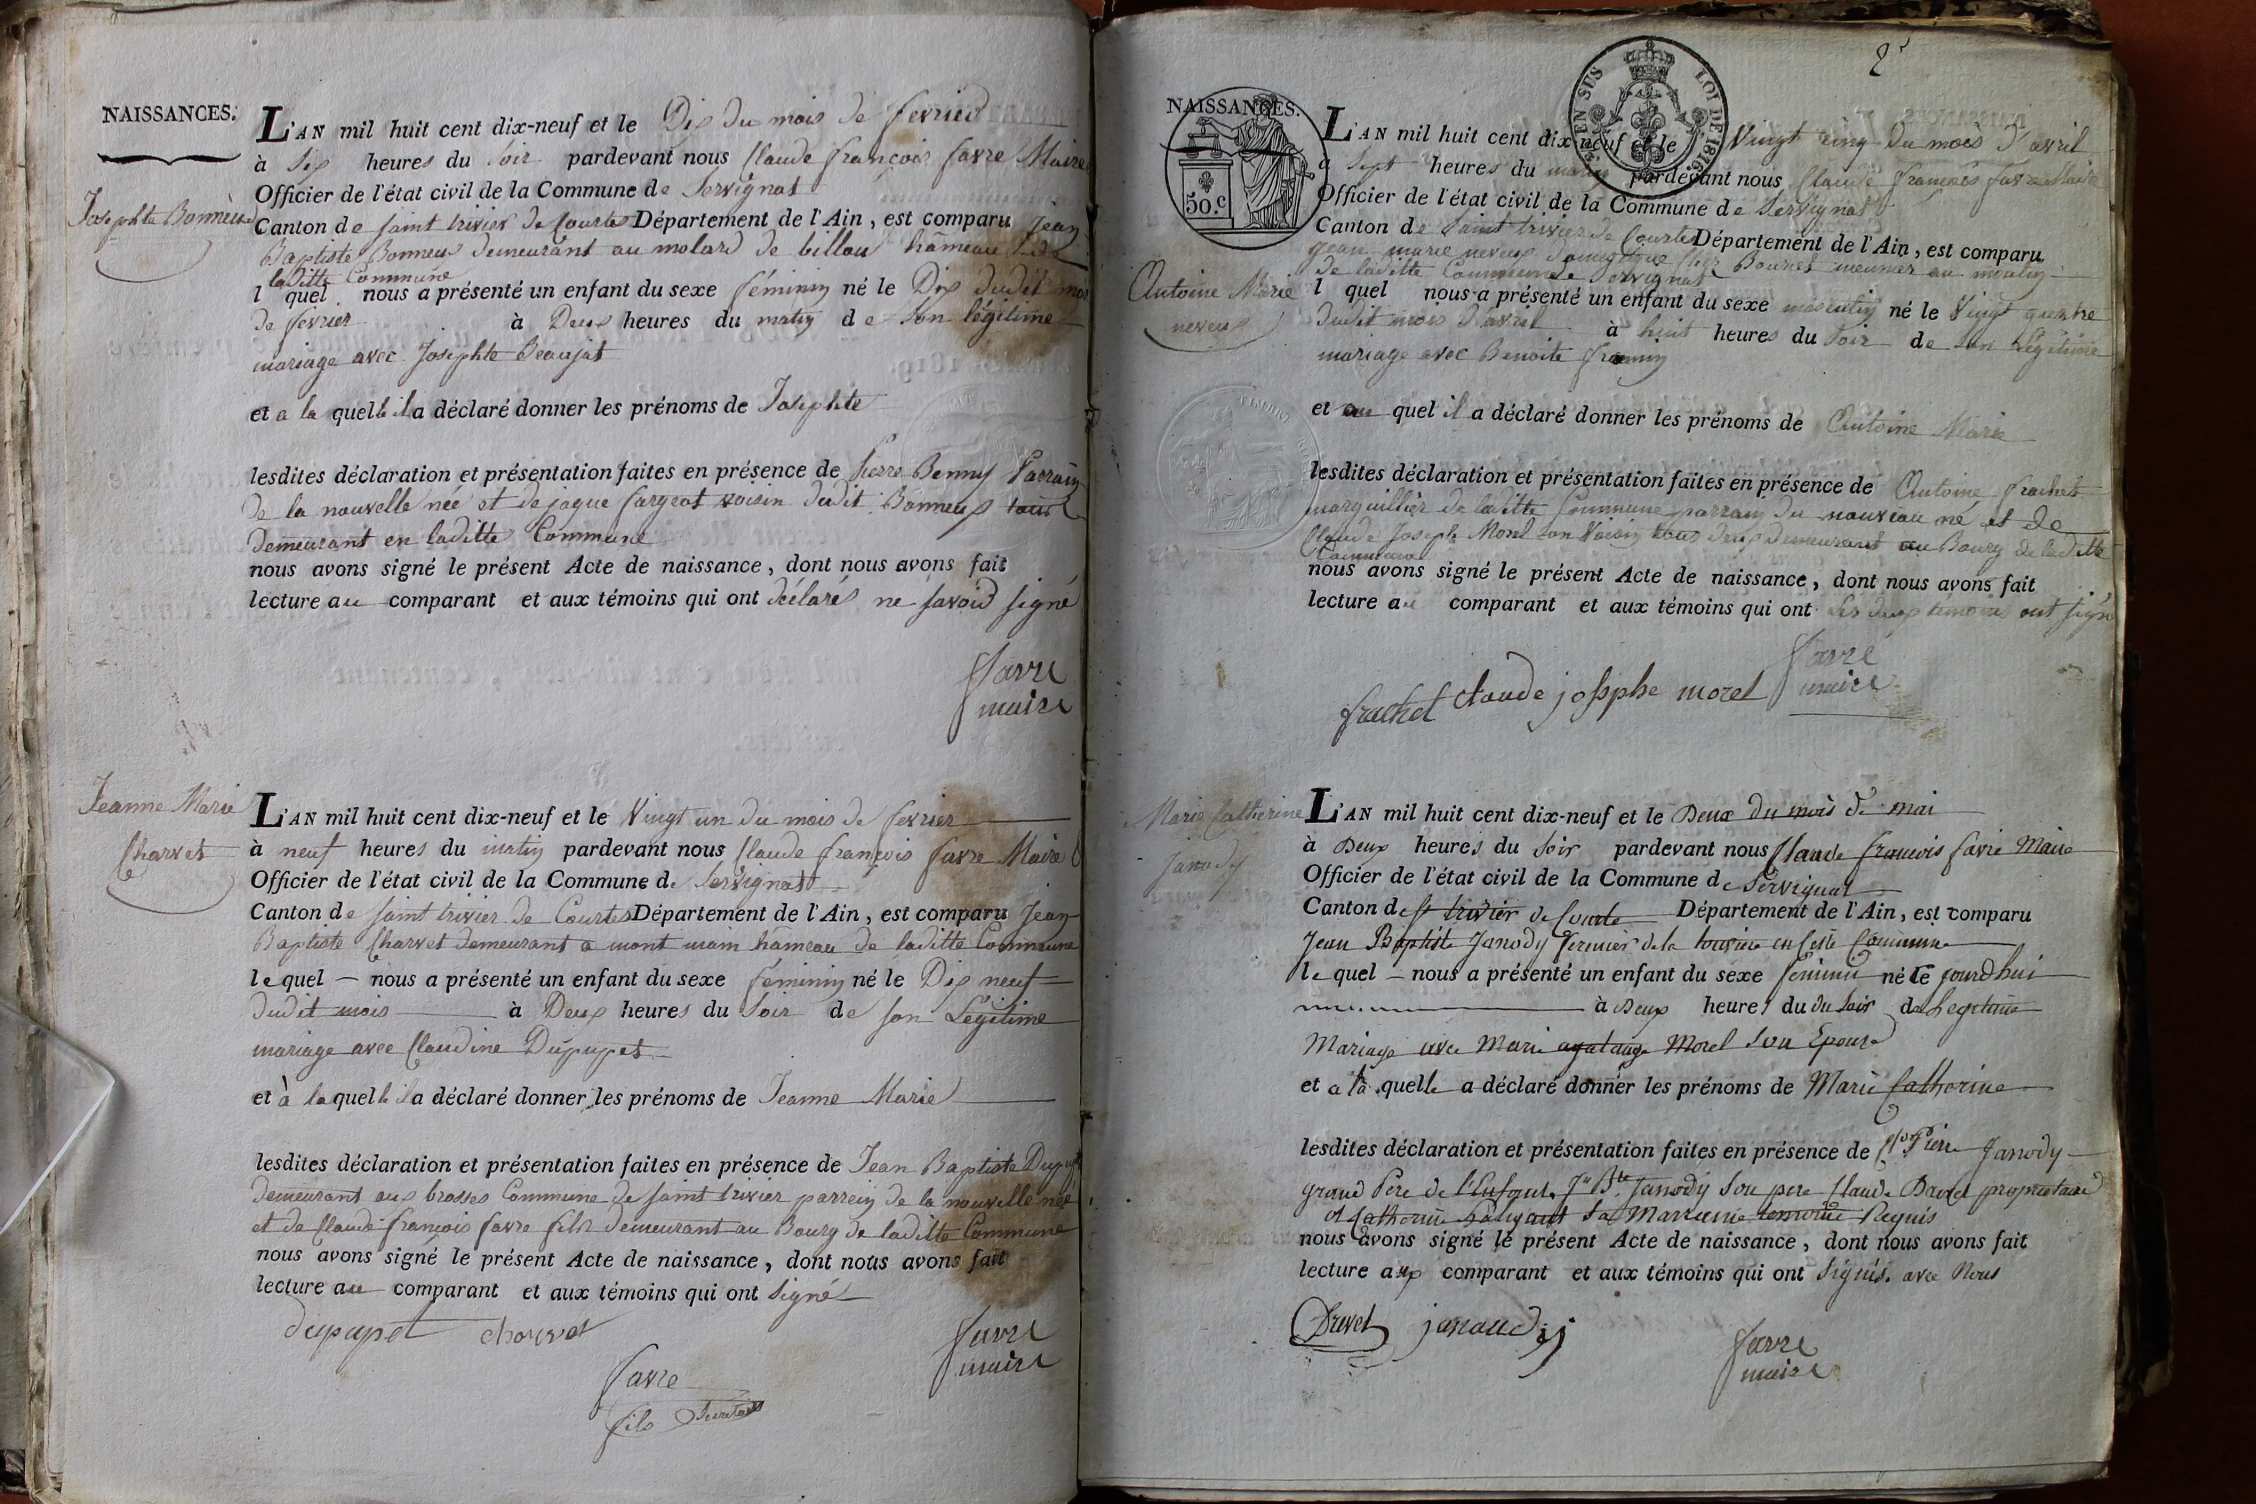 NAISSANCES.
L'AN mil huit cent dix-neuf et le Dix du mois de fevrier
à Six heures du soir pardevant nous Claude françois favre Maire
Officier de l'état civil de la Commune de Servignat
Josephte Bonneux
Canton de saint trivier de Courtes Département de l'Ain, est comparu Jean
Baptiste Bonneux demeurant au molard de billou hâmeau de
laditte Commune
l quel nous a présenté un enfant du sexe féminin né le Dix dudit mois
de fevrier à Deux heures du matin de son légitime
mariage avec Josephte Beaujat
et a la quelle il a déclaré donner les prénoms de Josephte
lesdites déclaration et présentation faites en présence de pierre Benny Parrain
de la nouvelle née et de jaque fargeot voisin dudit Bonneux tous
demeurant en laditte Commune
nous avons signé le présent Acte de naissance, dont nous avons fait
lecture au comparant et aux témoins qui ont déclarés ne savoir signé
favre
maire
Jeanne Marie
Charvet
L'AN mil huit cent dix-neuf et le Vingt un du mois de fevrier
à neuf heures du matin pardevant nous Claude françois favre Maire
Officier de l'état civil de la Commune de Servignat
Canton de saint trivier de Courtes Département de l'Ain, est comparu Jean
Baptiste Charvet demeurant a mont main hâmeau de laditte Commune
le quel nous a présenté un enfant du sexe féminin né le Dix neuf
dudit mois à Deux heures du soir de son Légitime
mariage avec Claudine Dupupet
et à laquelle il a déclaré donner les prénoms de Jeanne Marie
lesdites déclaration et présentation faites en présence de Jean Baptiste Dupupet
demeurant aux brosses Commune de saint trivier parrein de la nouvelle née
et de Claude françois favre fils demeurant au Bourg de laditte Commune
nous avons signé le présent Acte de naissance, dont nous avons fait
lecture au comparant et aux témoins qui ont signé
dupupet charvet
favre
maire
favre
fils
2
EN SUS LOI DE 1816.
NAISSANCES.
50.c
L'AN mil huit cent dix-neuf et le Vingt cinq du mois d'avril
a sept heures du matin pardevant nous Claude françois favre Maire
Officier de l'état civil de la Commune de Servignat
Canton de Saint trivier de Courtes Département de l'Ain, est comparu
jean marie neveux domestique chez Bouret meunier au moulin
de laditte Commune de Servignat
Antoine Marie
neveux
l quel nous a présenté un enfant du sexe masculin né le Vingt quatre
dudit mois d'avril à huit heures du soir de son Légitime
mariage avec Benoite
et au quel il a déclaré donner les prénoms de Antoine Marie
lesdites déclaration et présentation faites en présence de Antoine frachet
marguillier de laditte Commune parrain du nouveau né et de
Claude Joseph Morel son Voisin tous deux demeurant au Bourg de laditte
Commune
nous avons signé le présent Acte de naissance, dont nous avons fait
lecture au comparant et aux témoins qui ont les deux témoins ont signé
frachet claude josphe morel
favre
maire
Marie Catherine
Janody
L'AN mil huit cent dix-neuf et le Deux du mois de mai
à Deux heures du soir pardevant nous Claude francois favre Maire
Officier de l'état civil de la Commune de Servignat
Canton de st trivier de Courte Département de l'Ain, est comparu
Jean Baptiste Janody fermier de la en Cette Commune
le quel nous a présenté un enfant du sexe feminin né le jourdhui
à Deux heures du du soir de Legitime
Mariage avec Marie Morel son Epouse
et a la quelle a déclaré donner les prénoms de Marie Catherine
lesdites déclaration et présentation faites en présence de Pierre Janody
grand Père de l'Enfant, Jn Bte Janody son pere Claude Druvet proprietaire
et Catherine sa Marenne Requis
nous avons signé le présent Acte de naissance, dont nous avons fait
lecture aux comparant et aux témoins qui ont signés. avec Nous
Druvet janaudy
favre
maire